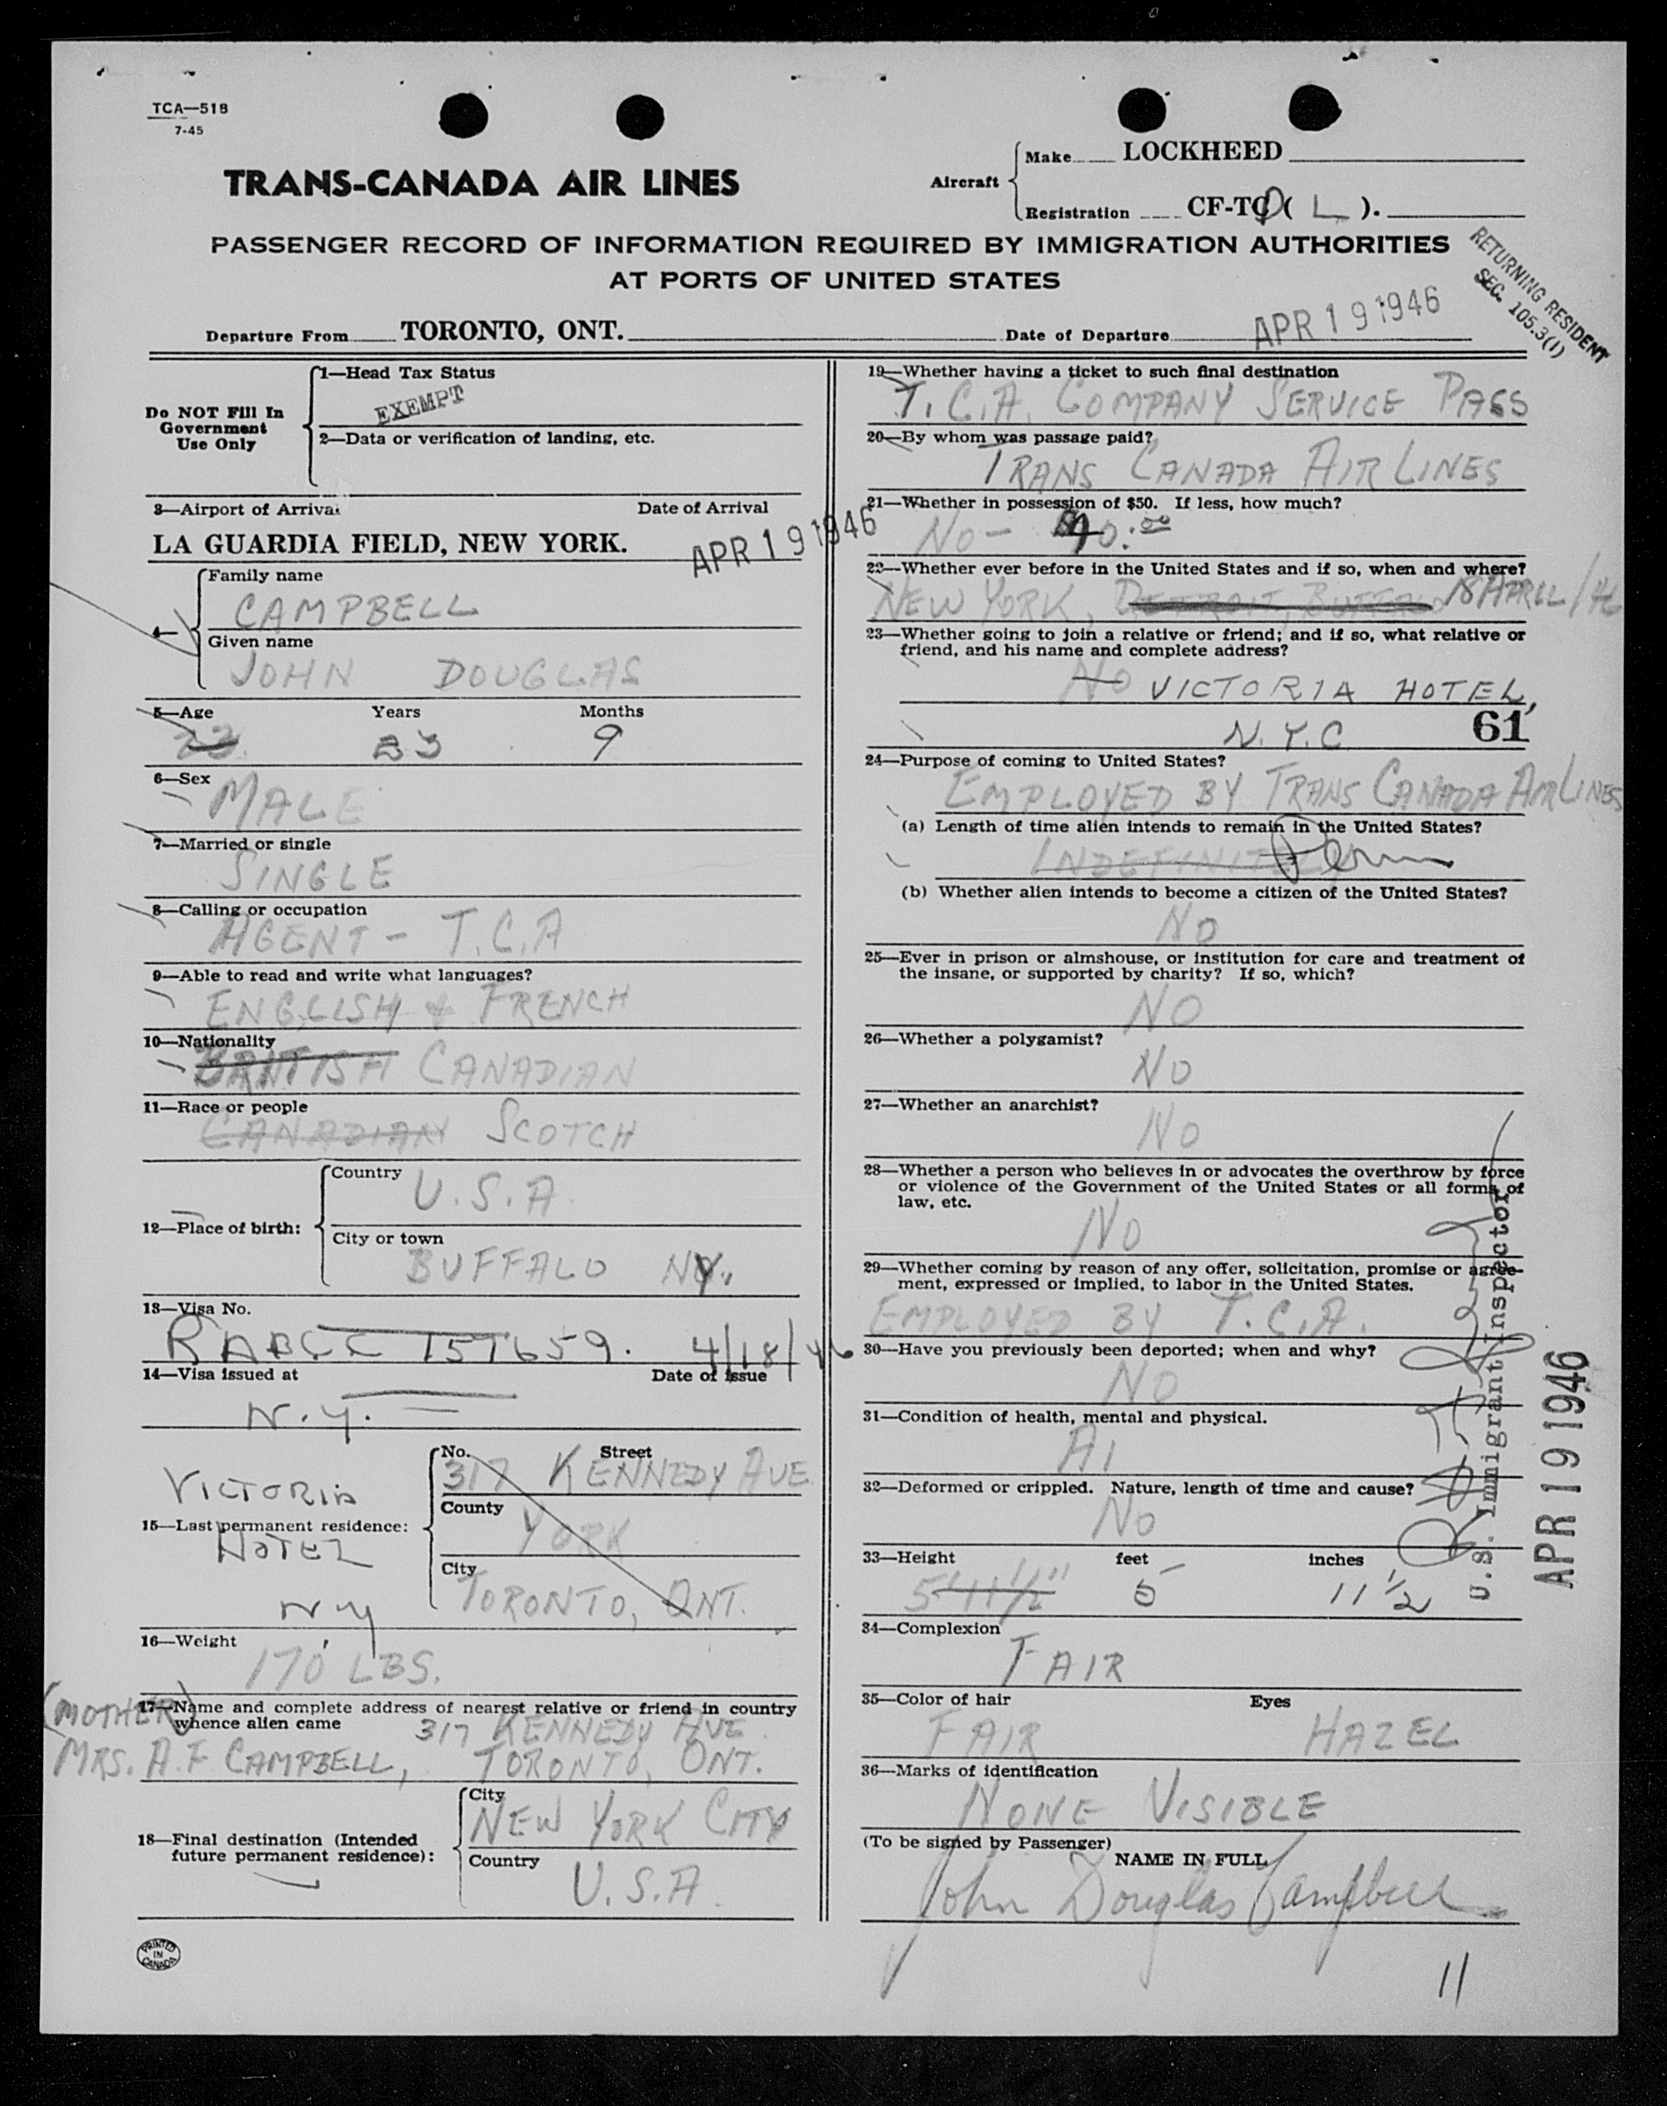 TCA—518
7-45
TRANS-CANADA AIR LINES
Aircraft
Make LOCKHEED
Registration CF-TC ( L ).
PASSENGER RECORD OF INFORMATION REQUIRED BY IMMIGRATION AUTHORITIES
AT PORTS OF UNITED STATES
RETURNING RESIDENT
SEC. 105.3(1)
Departure From TORONTO, ONT.
Date of Departure APR 19 1946
Do NOT Fill In
Government
Use Only
1—Head Tax Status
EXEMPT
2—Data or verification of landing, etc.
3—Airport of Arrival Date of Arrival
LA GUARDIA FIELD, NEW YORK. APR 19 1946
4—
Family name
CAMPBELL
Given name
JOHN DOUGLAS
5—Age Years Months
23 23 9
6—Sex
MALE
7—Married or single
SINGLE
8—Calling or occupation
AGENT - T.C.A
9—Able to read and write what languages?
ENGLISH & FRENCH
10—Nationality
BRITISH CANADIAN
11—Race or people
CANADIAN SCOTCH
12—Place of birth:
Country
U.S.A.
City or town
BUFFALO NY.
13—Visa No.
4/18/46
14—Visa issued at Date of issue
N.Y.
15—Last permanent residence:
VICTORIA
HOTEL
NY
No. Street
317 KENNEDY AVE
County
YORK
City
TORONTO, ONT.
16—Weight
170 LBS.
17—Name and complete address of nearest relative or friend in country
whence alien came
(MOTHER) 317 KENNEDY AVE.
MRS. A.F CAMPBELL, TORONTO, ONT.
18—Final destination (Intended
future permanent residence):
City
NEW YORK CITY
Country
U.S.A.
PRINTED
IN
CANADA
19—Whether having a ticket to such final destination
T.C.A. COMPANY SERVICE PASS
20—By whom was passage paid?
TRANS CANADA AIR LINES
21—Whether in possession of $50. If less, how much?
NO -
22—Whether ever before in the United States and if so, when and where?
NEW YORK, DETROIT, BUFFALO 18 APRIL/46
23—Whether going to join a relative or friend; and if so, what relative or
friend, and his name and complete address?
NO VICTORIA HOTEL,
N.Y.C 61
24—Purpose of coming to United States?
EMPLOYED BY TRANS CANADA AIR LINES
(a) Length of time alien intends to remain in the United States?
INDEFINITELY Perm
(b) Whether alien intends to become a citizen of the United States?
NO
25—Ever in prison or almshouse, or institution for care and treatment of
the insane, or supported by charity? If so, which?
NO
26—Whether a polygamist?
NO
27—Whether an anarchist?
NO
28—Whether a person who believes in or advocates the overthrow by force
or violence of the Government of the United States or all forms of
law, etc.
NO
29—Whether coming by reason of any offer, solicitation, promise or agree-
ment, expressed or implied, to labor in the United States.
EMPLOYED BY T.C.A.
30—Have you previously been deported; when and why?
NO
31—Condition of health, mental and physical.
A1
32—Deformed or crippled. Nature, length of time and cause?
NO
33—Height feet inches
5' 11½" 5 11½
34—Complexion
FAIR
35—Color of hair Eyes
FAIR HAZEL
36—Marks of identification
NONE VISIBLE
(To be signed by Passenger)
NAME IN FULL
John Douglas Campbell
U.S. Immigrant Inspector
APR 19 1946
11